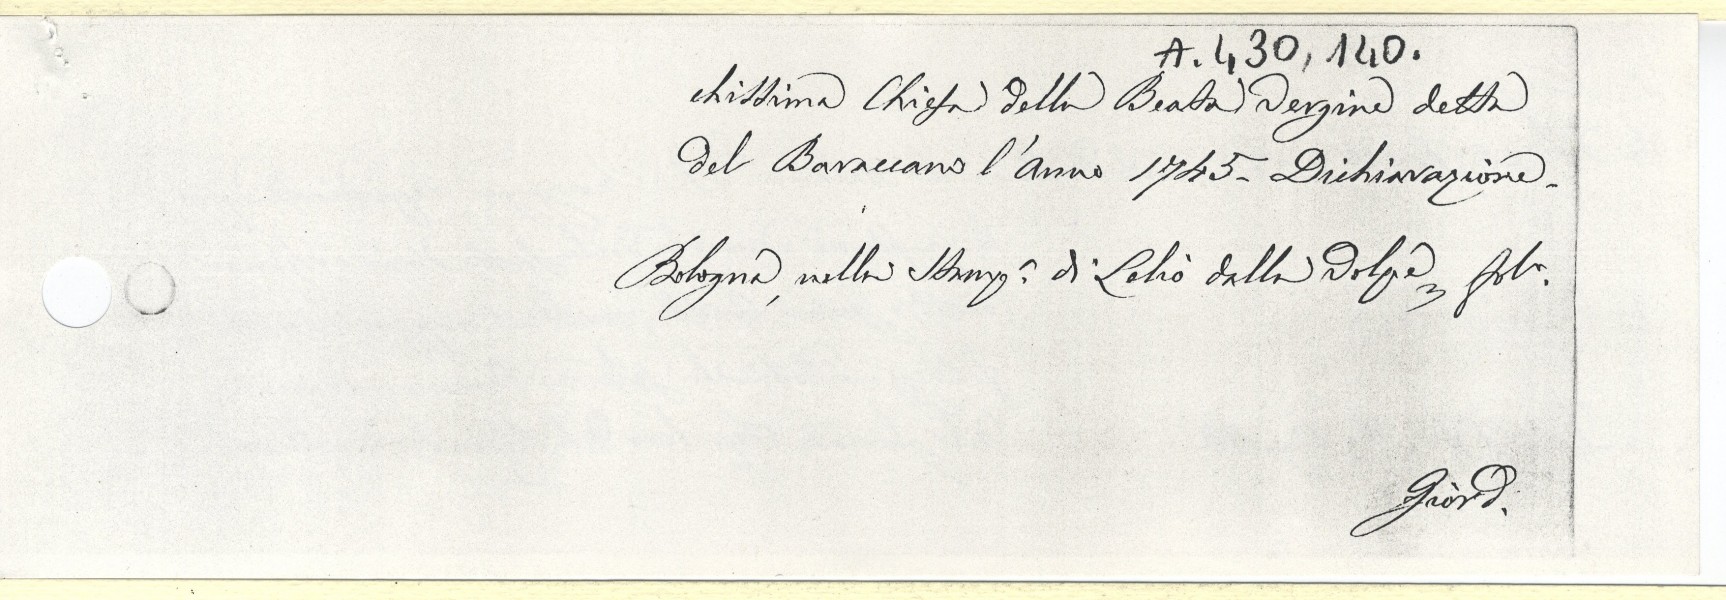 A. 430, 140.
chissima Chiesa della Beata Vergine detta
del Baraccano l'anno 1745- Dichiarazione.
Bologna, nella Stamp.ª di Lelio dalla Volpe, fol.º
Giord.